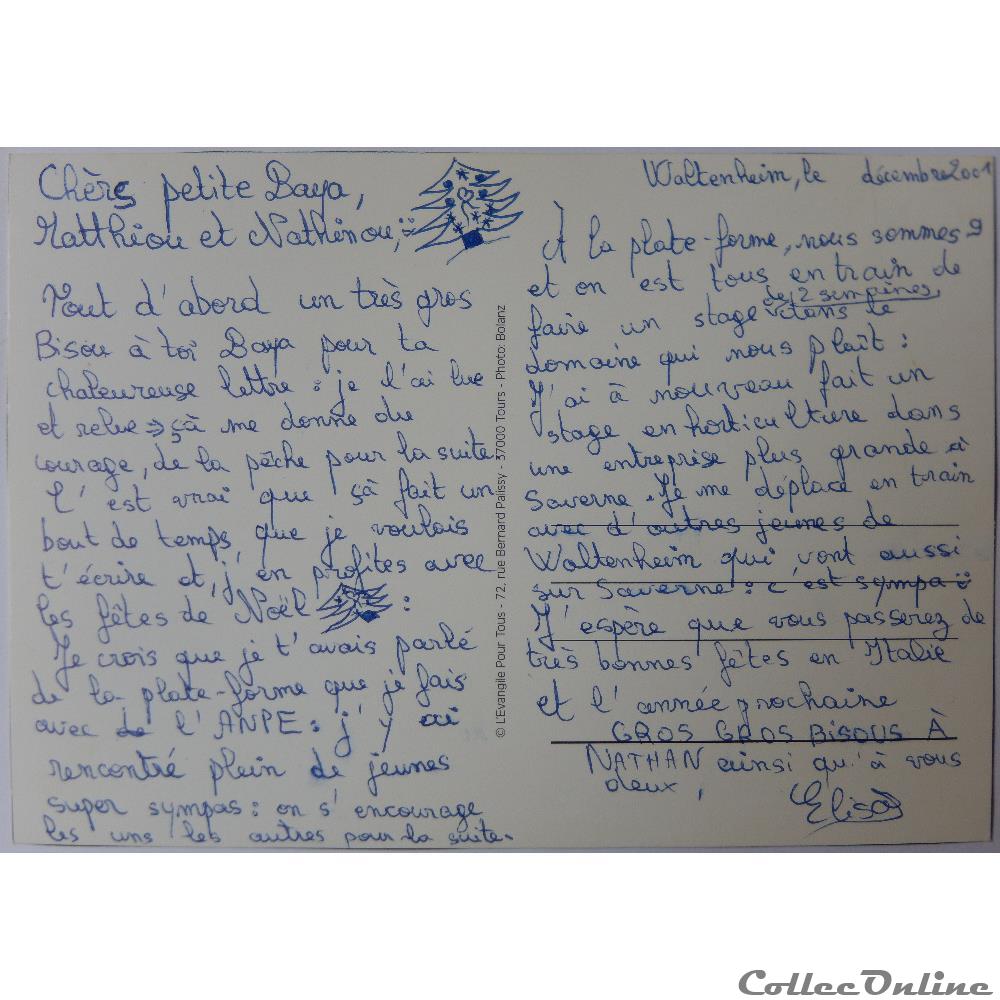 Chères petite Baya,
Matthiou et Nathinou,
Tout d'abord un très gros
Bisou à toi Baya pour ta
chaleureuse lettre : je l'ai lue
et relue => çà me donne du
courage, de la pêche pour la suite.
C'est vrai que çà fait un
bout de temps que je voulais
t'écrire et j'en profites avec
les fêtes de Noël :
Je crois que je t'avais parlé
de la plate-forme que je fais
avec de l'ANPE : j'y ai
rencontré plein de jeunes
super sympas : on s'encourage
les uns les autres pour la suite.
© L'Evangile Pour Tous - 72, rue Bernard Palissy - 37000 Tours - Photo: Bolanz
Waltenheim, le décembre 2001
À la plate-forme, nous sommes 9
et on est tous en train de
de 2 semaines
faire un stage dans le
domaine qui nous plaît :
J'ai à nouveau fait un
stage en horticulture dans
une entreprise plus grande à
Saverne. Je me déplace en train
avec d'autres jeunes de
Waltenheim qui vont aussi
sur Saverne : c'est sympa
J'espère que vous passerez de
très bonnes fêtes en Italie
et l'année prochaine
GROS GROS BISOUS À
NATHAN ainsi qu'à vous
deux,
Elisa
CollecOnline